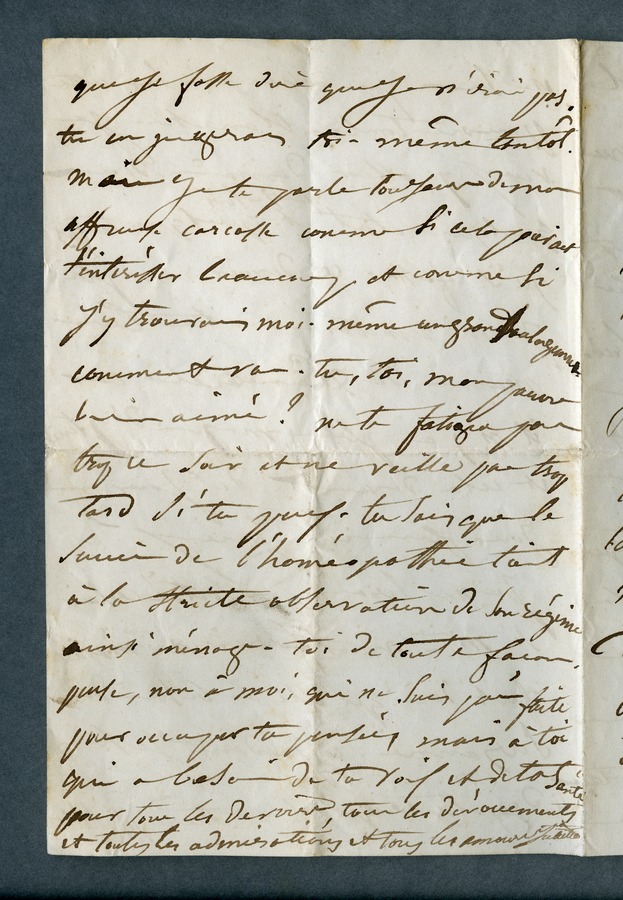 que je fasse dire que je n'irai pas.
tu en jugeras toi-même tantôt.
mais je te parle toujours de mon
affreuse carcasse comme si cela pouvait
t'intéresser beaucoup et comme si
j'y trouvais moi-même un grand
comment vas-tu, toi, mon pauvre
bien aimé ? ne te fatigue pas
trop ce soir et ne veille pas trop
tard si tu peux. tu sais que le
succès de l'homéopathie tient
à la stricte observation de son régime
ainsi ménage-toi de toute façon.
pense, non à moi, qui ne suis pas faite
pour occuper ta pensée, mais à toi
qui a besoin de ta vie et de ta santé
pour tous les devoirs, tous les dévouements
et toutes les admirations et tous les amours Juliette